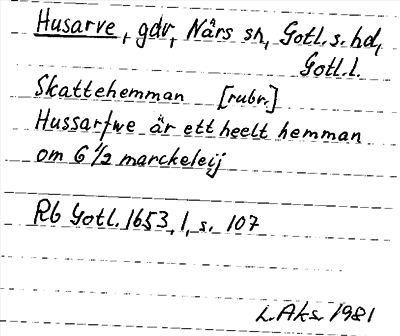 Husarve, gdr, Närs sn, Gotl. s. hd,
Gotl. l.
Skattehemman [rubr.]
Hussarfwe är ett heelt hemman
om 6 1/2 marckeleij
Rb Gotl. 1653, 1, s. 107
L. Aks. 1981